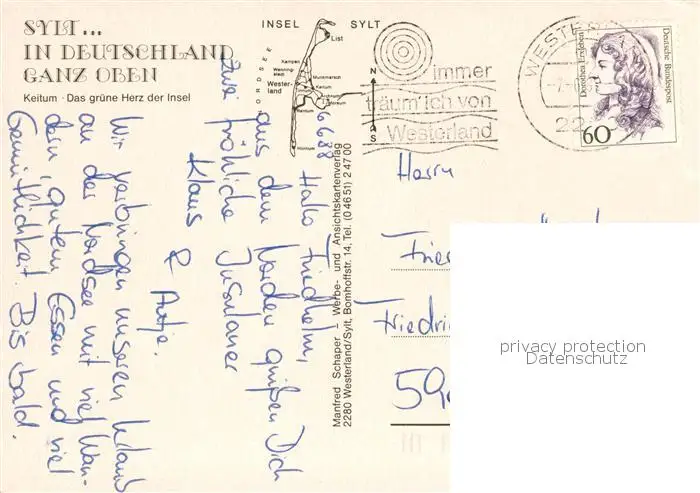 SYLT...
IN DEUTSCHLAND
GANZ OBEN
Keitum · Das grüne Herz der Insel
INSEL SYLT
NORDSEE
List
Kampen
Wenning-
stedt
Wester-
land
Munkmarsch
Keitum
Archsum
Morsum
Rantum
Hörnum
N
S
immer
träum' ich von
Westerland
WESTERLAND
22
Deutsche Bundespost
60
6688
Hallo Friedhelm,
aus dem Norden grüßen Dich
zwei fröhliche Insulaner
Klaus & Antje.
Wir verbringen unseren Urlaub
an der Nordsee mit viel Wan-
dern, gutem Essen und viel
Gemütlichkeit. Bis bald.
Manfred Schaper · Werbe- und Ansichtskartenverlag
2280 Westerland/Sylt, Bomhoffstr. 14, Tel. (0 46 51) 2 47 00
Herrn
Friedri
privacy protection
Datenschutz